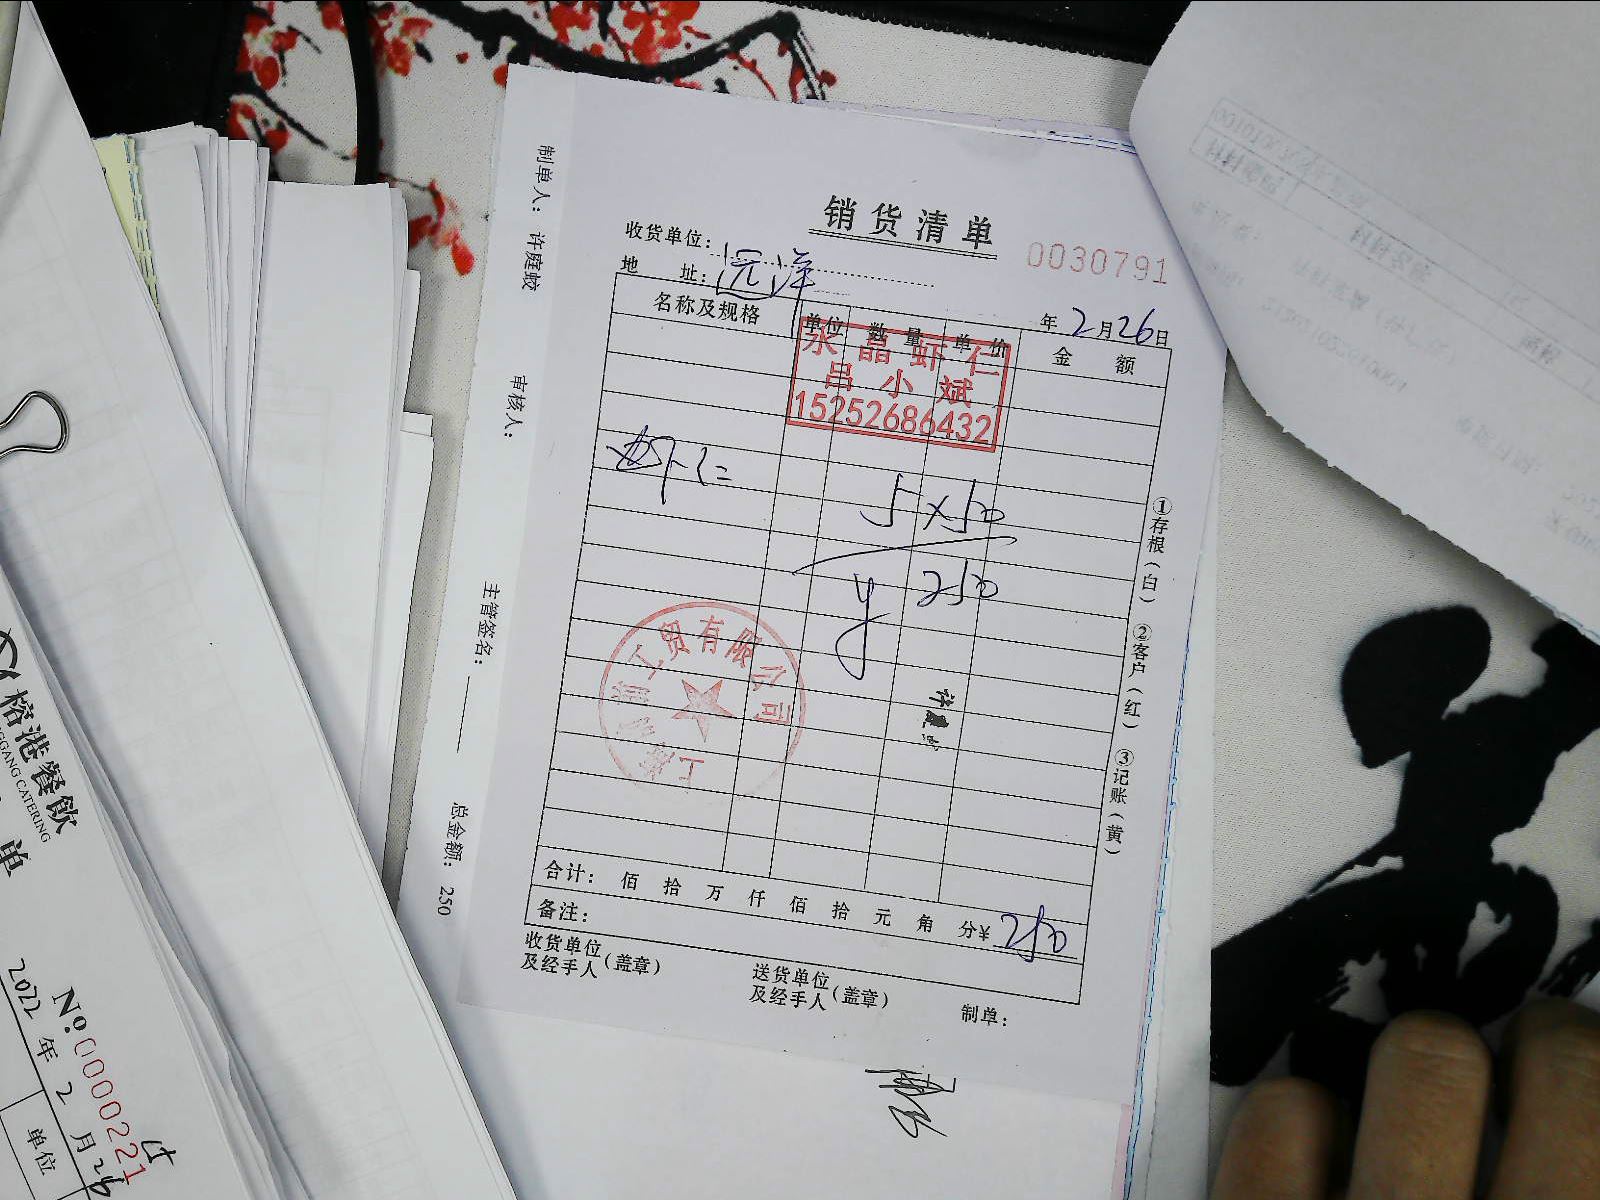 销货清单
0030791
收货单位：远洋
地 址：
年2月26日
名称及规格 单位 数量 单价 金额
永晶虾仁
吕小斌
15252686432
虾仁
5×50
¥ 250
工贸有限公司
许庭蛟
①存根（白） ②客户（红） ③记账（黄）
合计： 佰 拾 万 仟 佰 拾 元 角 分¥ 250
备注：
收货单位及经手人（盖章）
送货单位及经手人（盖章）
制单：
制单人： 许庭蛟
审核人：
主管签名：
总金额： 250
榕港餐飲
GGANG CATERING
单
No.0000221
2022年2月26
单位